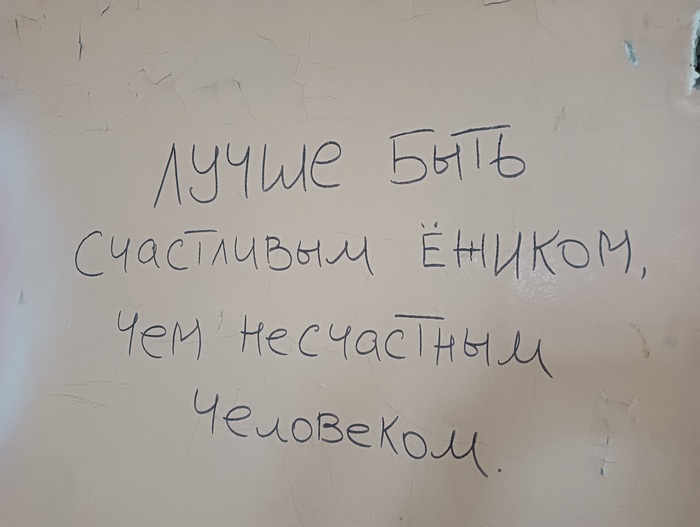 Лучше быть
счастливым ёжиком,
чем несчастным
человеком.